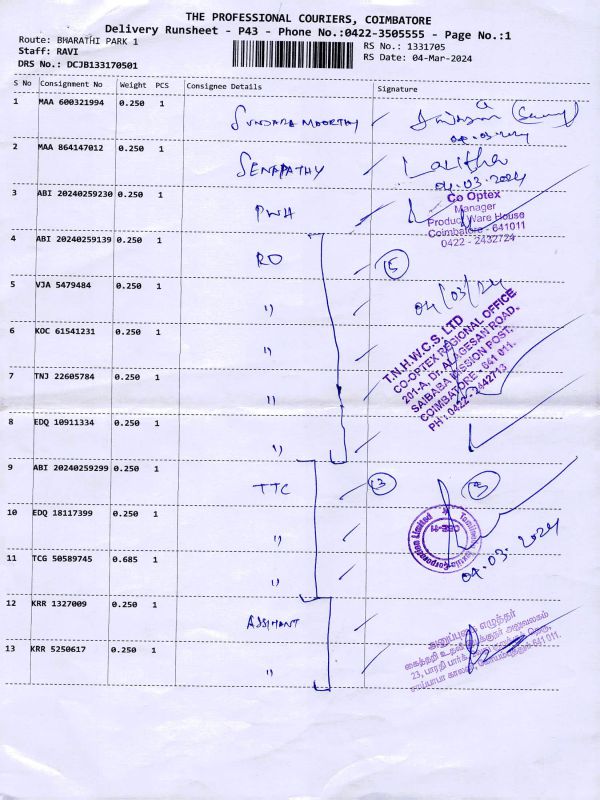 THE PROFESSIONAL COURIERS, COIMBATORE
Delivery Runsheet - P43 - Phone No.:0422-3505555 - Page No.:1
Route: BHARATHI PARK 1
RS No.: 1331705
Staff: RAVI
RS Date: 04-Mar-2024
DRS No.: DCJB133170501
S No Consignment No Weight PCS Consignee Details Signature
1 MAA 600321994 0.250 1 SUNDARA MOORTHY
04.03.2024
2 MAA 864147012 0.250 1 SENAPATHY Lalitha
04.03.2024
3 ABI 20240259230 0.250 1 PWH
Co Optex
Manager
Product Ware House
Coimbatore - 641011
0422 - 2432724
4 ABI 20240259139 0.250 1 RO 5
5 VJA 5479484 0.250 1 " 04/03/24
6 KOC 61541231 0.250 1 "
T.N.H.W.C.S. LTD
CO-OPTEX REGIONAL OFFICE
201-A, Dr. ALAGESAN ROAD,
SAIBABA MISSION POST,
COIMBATORE - 641 011.
PH : 0422 - 2442713
7 TNJ 22605784 0.250 1 "
8 EDQ 10911334 0.250 1 "
9 ABI 20240259299 0.250 1 TTC 3
10 EDQ 18117399 0.250 1 "
Corporation Limited
CBE-11
04.03.2024
11 TCG 50589745 0.685 1 "
12 KRR 1327009 0.250 1
அனுப்புநர் எழுத்தர்
13 KRR 5250617 0.250 1 "
23, பாரதி பார்க்
641 011.